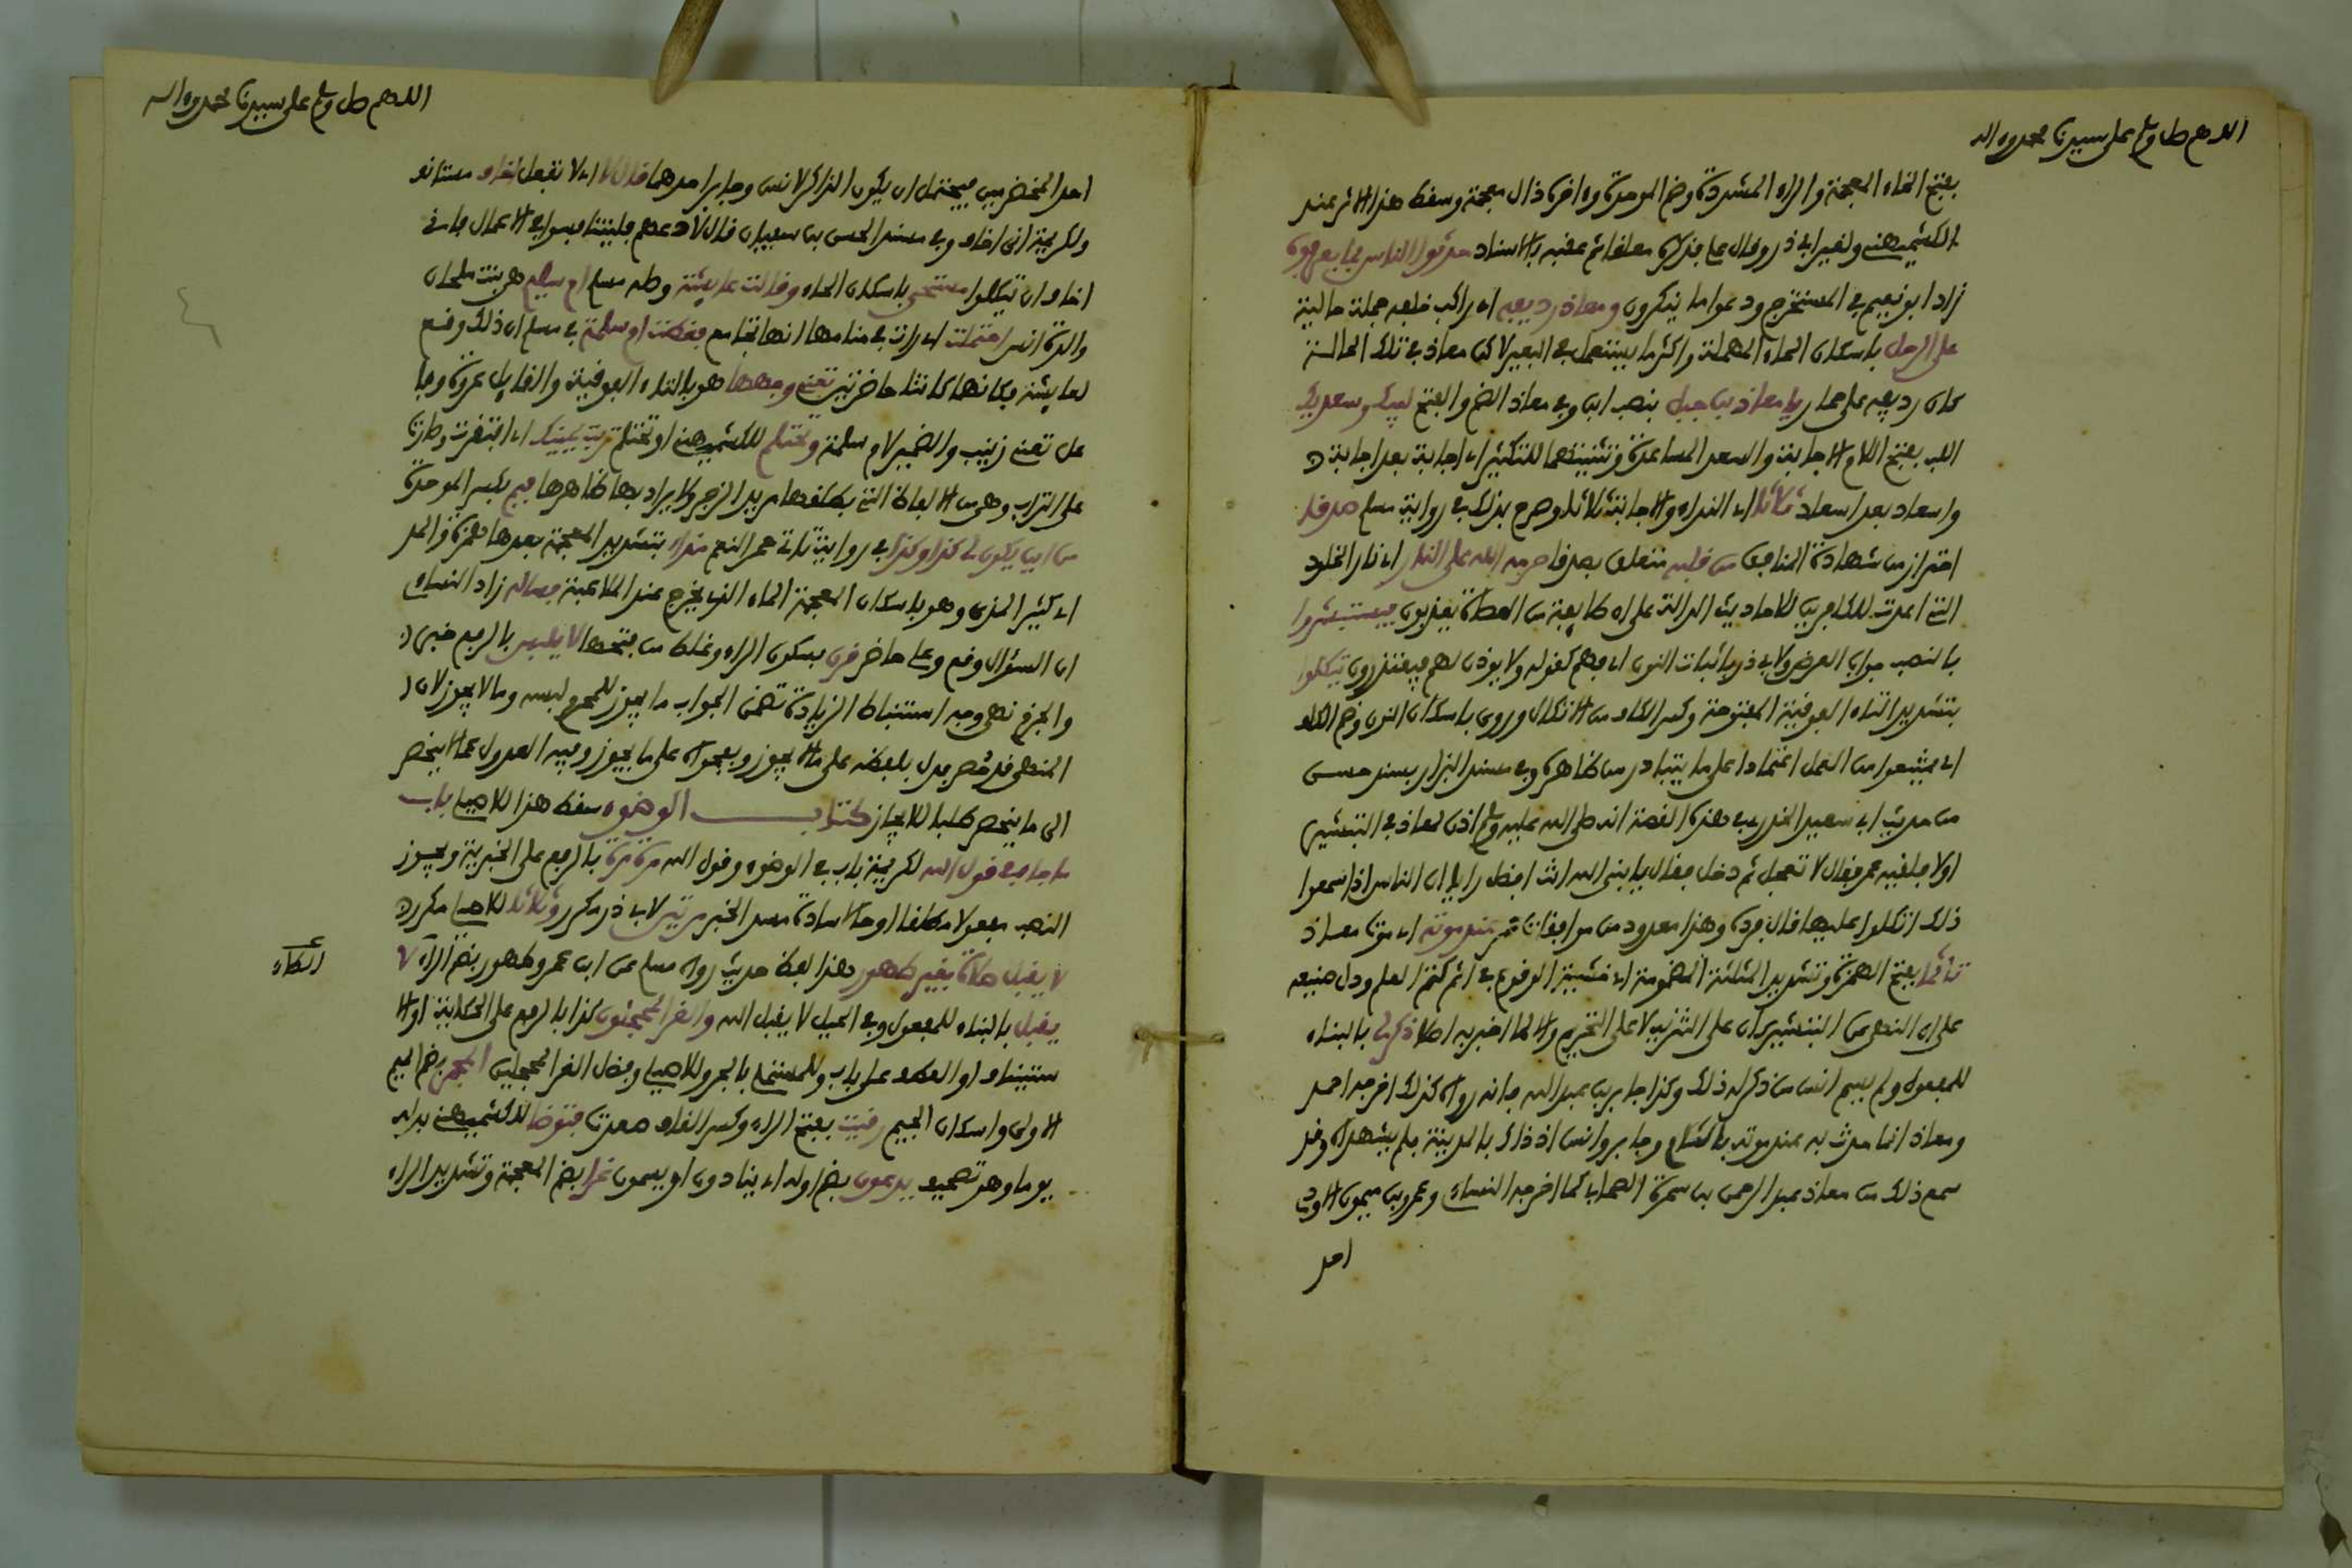 اللهم صل وسلم على سيدنا محمد وءاله
بفتح الخاء المعجمة والراء المشددة وضم الموحدة وءاخره ذال معجمة وسفط هذا الاثر عند
الكشميهني ولغير ابي ذر وقال علي فذكره معلقا ثم عقبه بالاسناد حدثوا الناس بما يعرفون
زاد ابو نعيم في المستخرج ودعوا ما ينكرون ومعاذ رديفه اي راكب خلفه جملة حالية
على الرحل باسكان الحاء المهملة واكثر ما يستعمل في البعير لاكن معاذ في تلك الحالة
كان رديفه على حمار يا معاذ بن جبل بنصب ابن وفي معاذ الضم والفتح لبيك وسعديك
اللب بفتح اللام الاجابة والسعد المساعدة وتثنيتهما للتكثير اي اجابة بعد اجابة
واسعاد بعد اسعاد ثلاثا اي النداء والاجابة ثلاثا وصرح بذلك في رواية مسلم صدقا
احتراز من شهادة المنافق من قلبه متعلق بصدقا حرمه الله على النار اي نار الخلود
التي اعدت للكافرين للاحاديث الدالة على ان طايفة من العصاة يعذبون فيستبشروا
بالنصب جواب العرض ولابي ذر باثبات النون اي فهم كقوله ولا يوذن لهم فيعتذرون يتكلوا
بتشديد التاء الفوقية المفتوحة وكسر الكاف من الاتكال وروي باسكان النون وضم الكاف
اي يمتنعوا من العمل اعتمادا على ما يتبادر من ظاهره وفي مسند البزار بسند حسن
من حديث ابي سعيد الخدري في هذه القصة انه صلى الله عليه وسلم اذن لمعاذ في التبشير
اولا فلقيه عمر فقال لا تعجل ثم دخل فقال يا نبي الله انت افضل رايا ان الناس اذا سمعوا
ذلك اتكلوا عليها قال فرده وهذا معدود من موافقات عمر عند موته اي موت معاذ
تاثما بفتح الهمزة وتشديد المثلثة المضمومة اي خشية الوقوع في اثم كتم العلم ودل صنيعه
على ان النهي عن التبشير كان على التنزيه لا على التحريم والا لما اخبر به اصلا ذكر لي بالبناء
للمفعول ولم يسم انس من ذكر له ذلك وكذا جابر بن عبد الله فانه رواه كذلك اخرجه احمد
ومعاذ انما حدث به عند موته بالشام وجابر وانس اذ ذاك بالمدينة فلم يشهداه وقد
سمع ذلك من معاذ عبد الرحمن بن سمرة الصحابي كما اخرجه النساءي وعمرو بن ميمون الاودي
احد
اللهم صل وسلم على سيدنا محمد وءاله
احد المخضرمين فيحتمل ان يكون الذاكر لانس وجابر احدهما قال لا اي لا تفعل اخاف مستانف
ولكريمة اني اخاف وفي مسند الحسن بن سعيان قال لا دعهم فليتنافسوا في الاعمال فاني
اخاف ان يتكلوا مستحي باسكان الحاء وقالت عايشة وصله مسلم ام سليم هي بنت ملحان
والدة انس احتملت اي رات في منامها انها تجامع فغطت ام سلمة في مسلم ان ذلك وقع
لعايشة فكانهما كانتا حاضرتين تعني وجهها هو بالتاء الفوقية والقايل عروة وفا
عل تعني زينب والضمير لام سلمة وتحتلم للكشميهني او تحتلم تربت يمينك اي افتقرت وصارت
على التراب وهي من الالفاظ التي يطلقها مريد الزجر ولا يراد بها ظاهرها فبم بكسر الموحدة
من اين يكون لي كذا وكذا في رواية تاتي حمر النعم مذاء بتشديد المعجمة بعدها همزة والمد
اي كثير المذي وهو باسكان المعجمة الماء الذي يخرج عند الملاعبة فساله زاد النساءي
ان السؤال وقع وعلي حاضر قرن بسكون الراء وغلط من فتحها لا يلبس بالرفع خبرا
والجزم نهي وجه استنباط الزيادة تضمن الجواب ما يجوز للمحرم لبسه وما لا يجوز لان
المنهي قد حصر بدل بلفظه على ما لا يجوز وبفحواه على ما يجوز وفيه العدول عما لا ينحصر
الى ما ينحصر طلبا للايجاز كتاب الوضوء سقط هذا للاصيلي باب
ما جاء في قول الله لكريمة باب في الوضوء وقول الله مرة مرة بالرفع على الخبرية ويجوز
النصب مفعولا مطلقا او حالا سادة مسد الخبر مرتين لابي ذر مكرر وثلاثا للاصيلي مكررة
لا يقبل صلاة بغير طهور هذا لفظ حديث رواه مسلم عن ابن عمر وطهور بضم الراء لا
الطاء
يقبل بالبناء للمفعول وفي الحيل لا يقبل الله والغر المحجلون كذا بالرفع على الحكاية او الا
ستيناف او العطف على باب وللمستملي بالجر وللاصيلي وفضل الغر المحجلين المجمر بضم الميم
الاولى واسكان الجيم رقيت بفتح الراء وكسر القاف صعدت فتوضا للكشميهني بدله
يوما وهو تصحيف يدعون بضم اوله اي ينادون او يسمون غرا بضم المعجمة وتشديد الراء